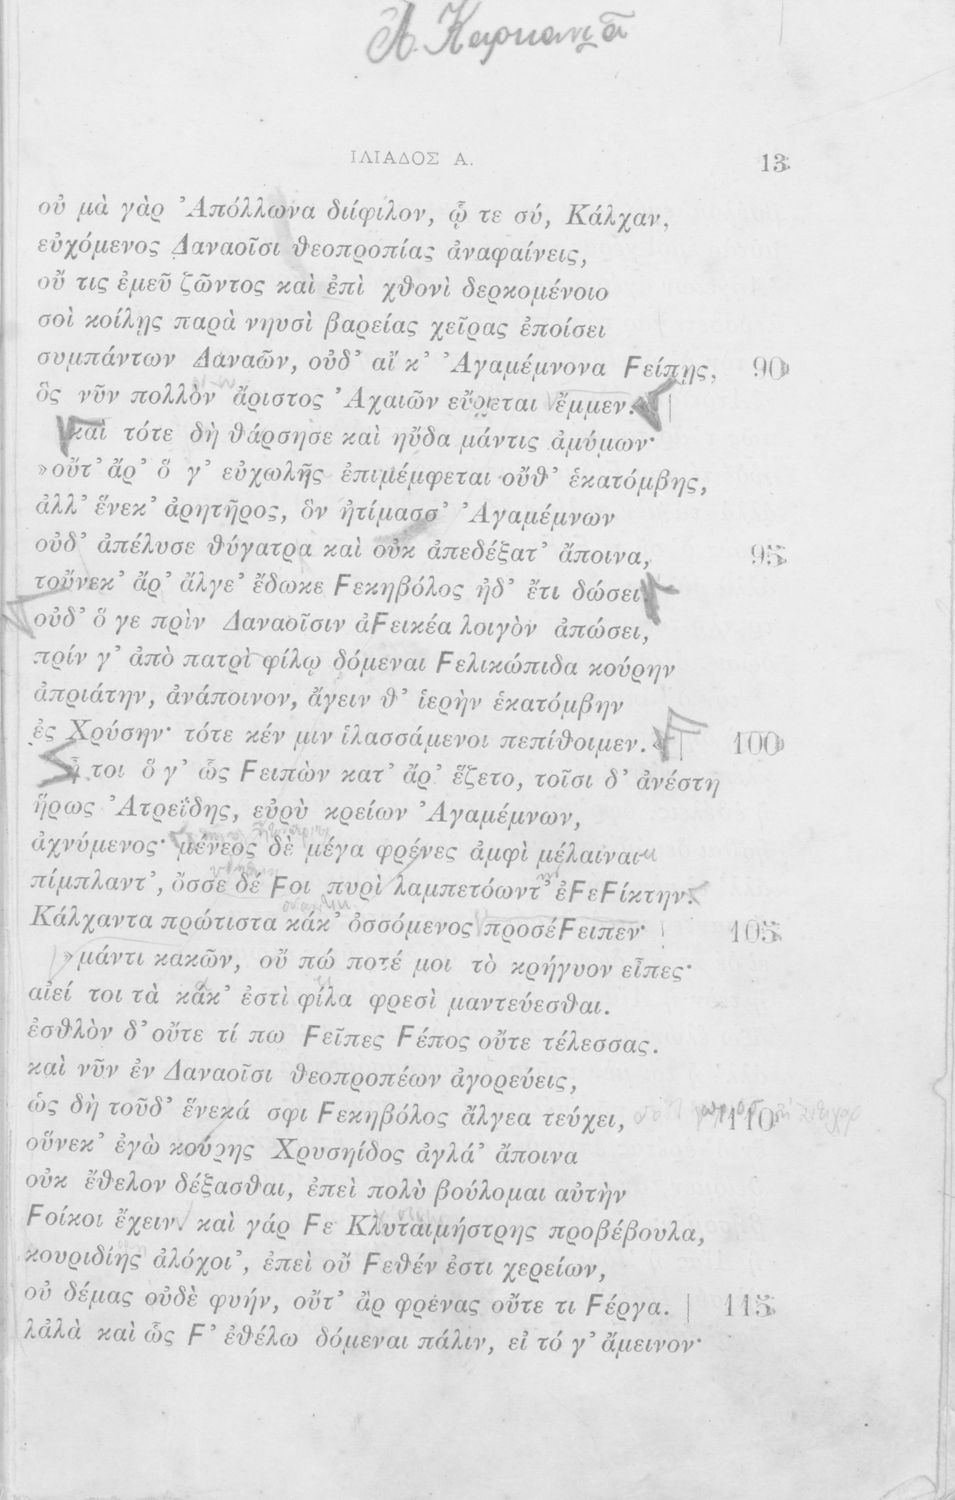 ΙΛΙΑΔΟΣ Α. 13
οὐ μὰ γὰρ Ἀπόλλωνα διίφιλον, ᾧ τε σύ, Κάλχαν,
εὐχόμενος Δαναοῖσι θεοπροπίας ἀναφαίνεις,
οὔ τις ἐμεῦ ζῶντος καὶ ἐπὶ χθονὶ δερκομένοιο
σοὶ κοίλῃς παρὰ νηυσὶ βαρείας χεῖρας ἐποίσει
συμπάντων Δαναῶν, οὐδ’ αἴ κ’ Ἀγαμέμνονα Ϝείπῃς, 90
ὃς νῦν πολλὸν ἄριστος Ἀχαιῶν εὔχεται ἔμμεν.«
καὶ τότε δὴ θάρσησε καὶ ηὔδα μάντις ἀμύμων·
»οὔτ’ ἄρ’ ὅ γ’ εὐχωλῆς ἐπιμέμφεται οὔθ’ ἑκατόμβης,
ἀλλ’ ἕνεκ’ ἀρητῆρος, ὃν ἠτίμασσ’ Ἀγαμέμνων
οὐδ’ ἀπέλυσε θύγατρα καὶ οὐκ ἀπεδέξατ’ ἄποινα, 95
τοὔνεκ’ ἄρ’ ἄλγε’ ἔδωκε Ϝεκηβόλος ἠδ’ ἔτι δώσει
οὐδ’ ὅ γε πρὶν Δαναοῖσιν ἀϜεικέα λοιγὸν ἀπώσει,
πρίν γ’ ἀπὸ πατρὶ φίλῳ δόμεναι Ϝελικώπιδα κούρην
ἀπριάτην, ἀνάποινον, ἄγειν θ’ ἱερὴν ἑκατόμβην
ἐς Χρύσην· τότε κέν μιν ἱλασσάμενοι πεπίθοιμεν.« 100
ἦ τοι ὅ γ’ ὣς Ϝειπὼν κατ’ ἄρ’ ἕζετο, τοῖσι δ’ ἀνέστη
ἥρως Ἀτρεΐδης, εὐρὺ κρείων Ἀγαμέμνων,
ἀχνύμενος· μένεος δὲ μέγα φρένες ἀμφὶ μέλαιναι
πίμπλαντ’, ὄσσε δέ Ϝοι πυρὶ λαμπετόωντ’ ἐϜεϜίκτην.
Κάλχαντα πρώτιστα κάκ’ ὀσσόμενος προσέϜειπεν· 105
»μάντι κακῶν, οὔ πώ ποτέ μοι τὸ κρήγυον εἶπες·
αἰεί τοι τὰ κάκ’ ἐστὶ φίλα φρεσὶ μαντεύεσθαι.
ἐσθλὸν δ’ οὔτε τί πω Ϝεῖπες Ϝέπος οὔτε τέλεσσας.
καὶ νῦν ἐν Δαναοῖσι θεοπροπέων ἀγορεύεις,
ὡς δὴ τοῦδ’ ἕνεκά σφι Ϝεκηβόλος ἄλγεα τεύχει, 110
οὕνεκ’ ἐγὼ κούρης Χρυσηίδος ἀγλά’ ἄποινα
οὐκ ἔθελον δέξασθαι, ἐπεὶ πολὺ βούλομαι αὐτὴν
Ϝοίκοι ἔχειν. καὶ γάρ Ϝε Κλυταιμήστρης προβέβουλα,
κουριδίης ἀλόχοι’, ἐπεὶ οὔ Ϝεθέν ἐστι χερείων,
οὐ δέμας οὐδὲ φυήν, οὔτ’ ἂρ φρένας οὔτε τι Ϝέργα. 115
λἀλὰ καὶ ὧς Ϝ’ ἐθέλω δόμεναι πάλιν, εἰ τό γ’ ἄμεινον·